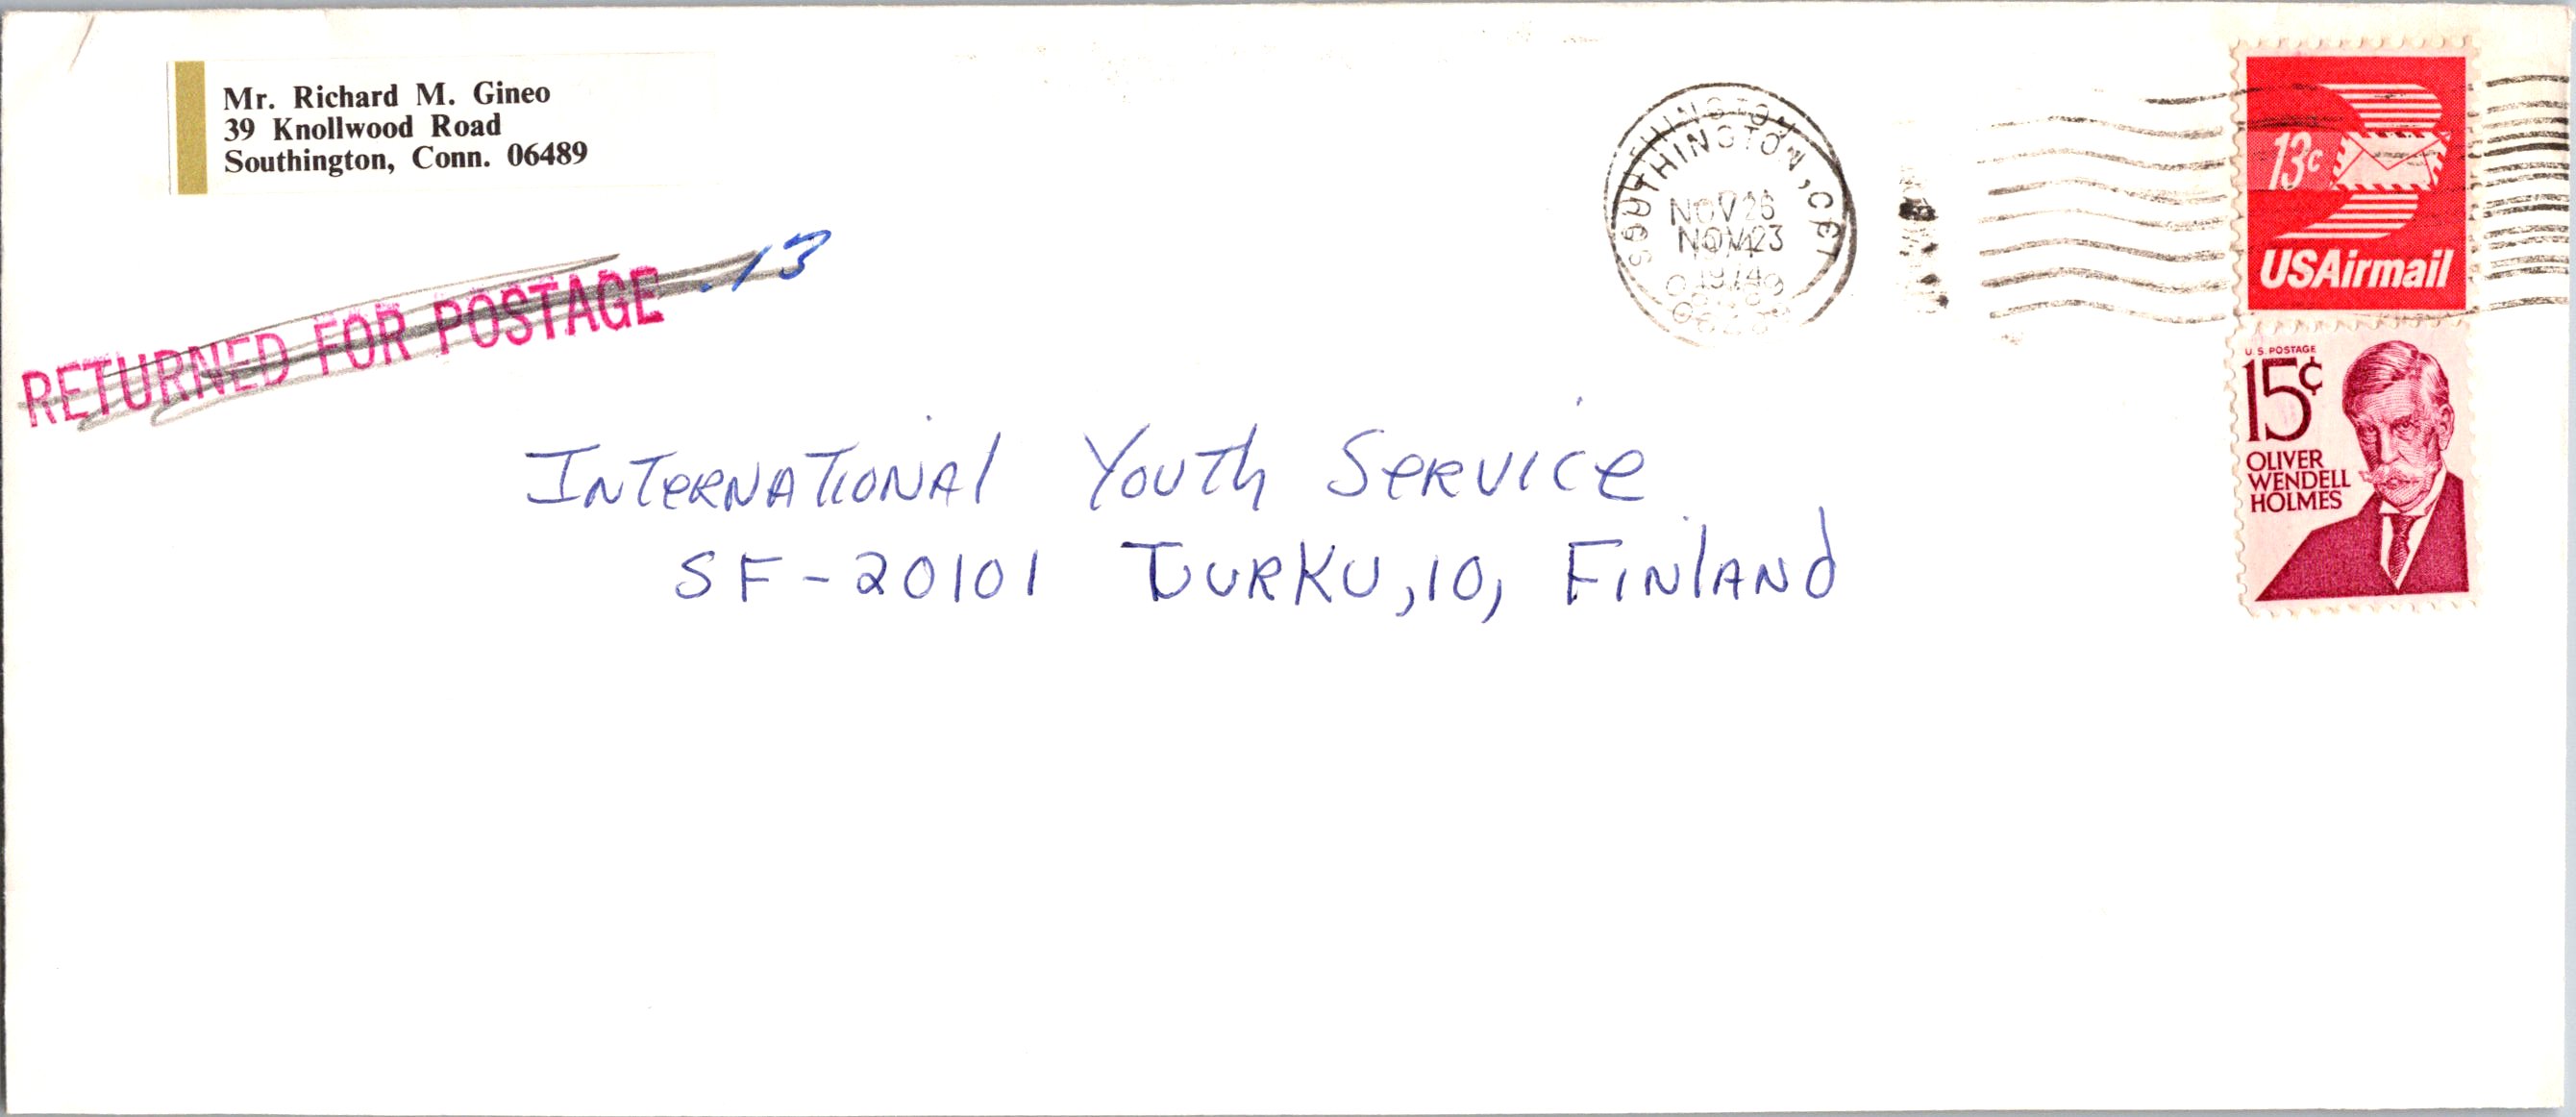 Mr. Richard M. Gineo
39 Knollwood Road
Southington, Conn. 06489
RETURNED FOR POSTAGE .13
SOUTHINGTON, CT
NOV 26
NOV 23
1974
13c
USAirmail
U.S. POSTAGE
15¢
OLIVER
WENDELL
HOLMES
International Youth Service
SF-20101 TURKU, 10, FINLAND